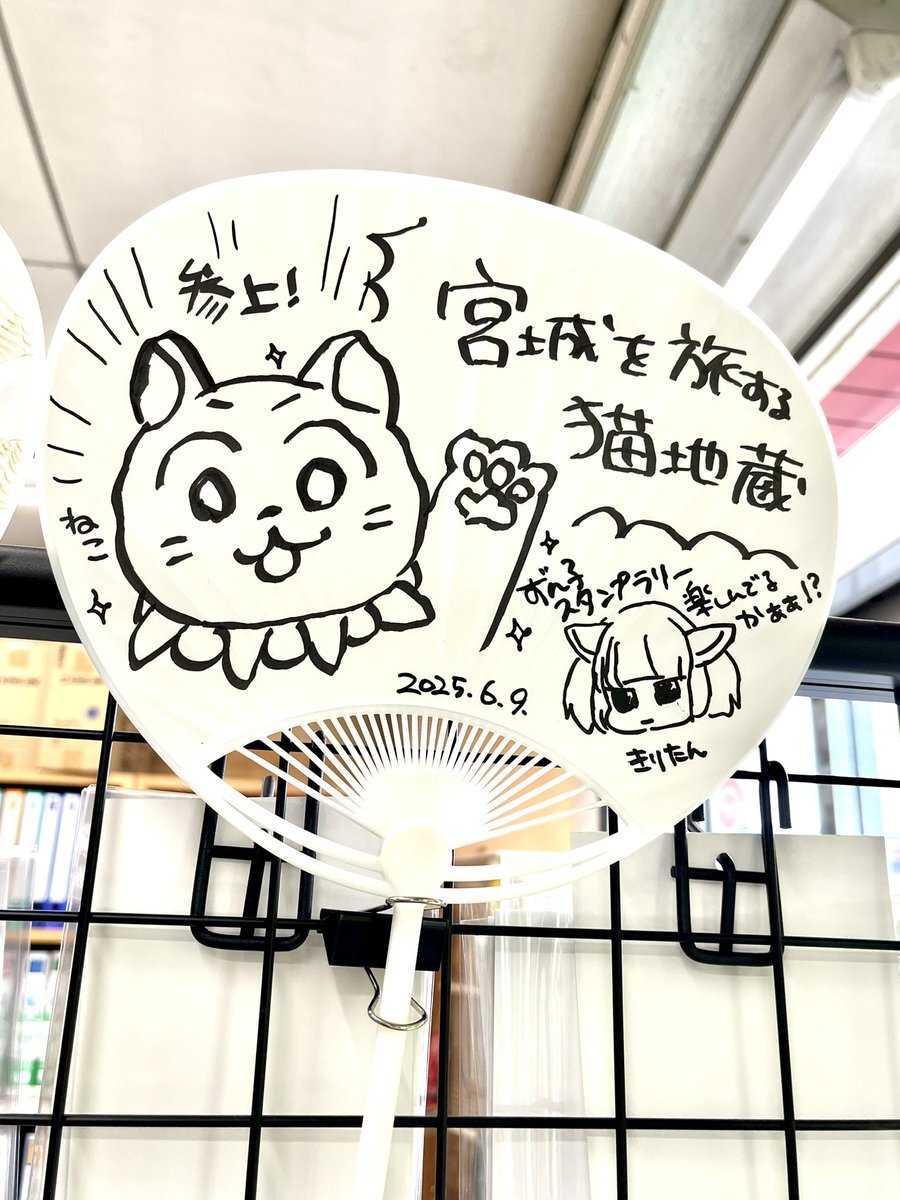 参上！
宮城を旅する
猫地蔵
ねこ
ずん子
スタンプラリー
楽しんでる
かぁぁ!?
2025.6.9.
きりたん